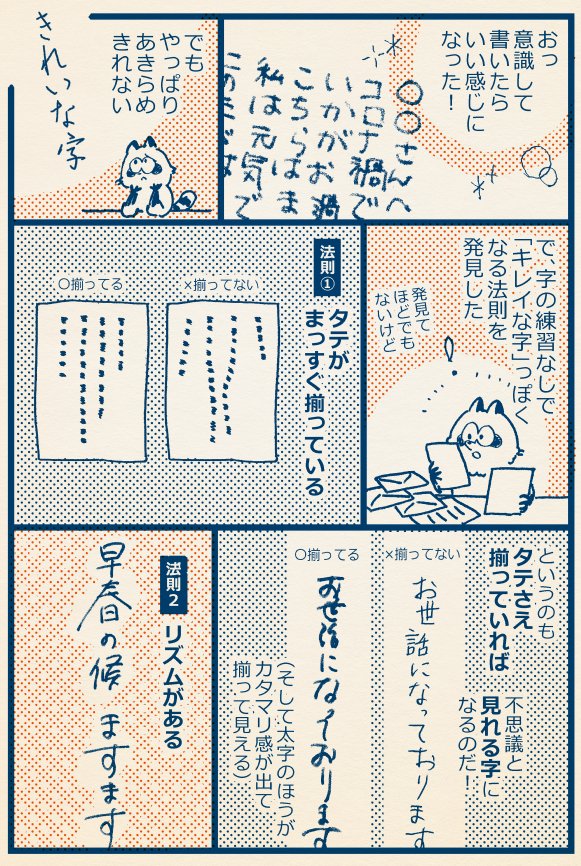 おっ
意識して
書いたら
いい感じに
なった！
〇〇さんへ
コロナ禍で
いかがお過
こちらはま
私は元気で
でも
やっぱり
あきらめ
きれない
きれいな字
で、字の練習なしで
「キレイな字」っぽく
なる法則を
発見した
発見て
ほどでも
ないけど
法則①
タテが
まっすぐ揃っている
×揃ってない
〇揃ってる
というのも
タテさえ
揃っていれば
不思議と
見れる字に
なるのだ！
×揃ってない
お世話になっております
〇揃ってる
お世話になっております
（そして太字のほうが
カタマリ感が出て
揃って見える）
法則2
リズムがある
早春の候 ますます